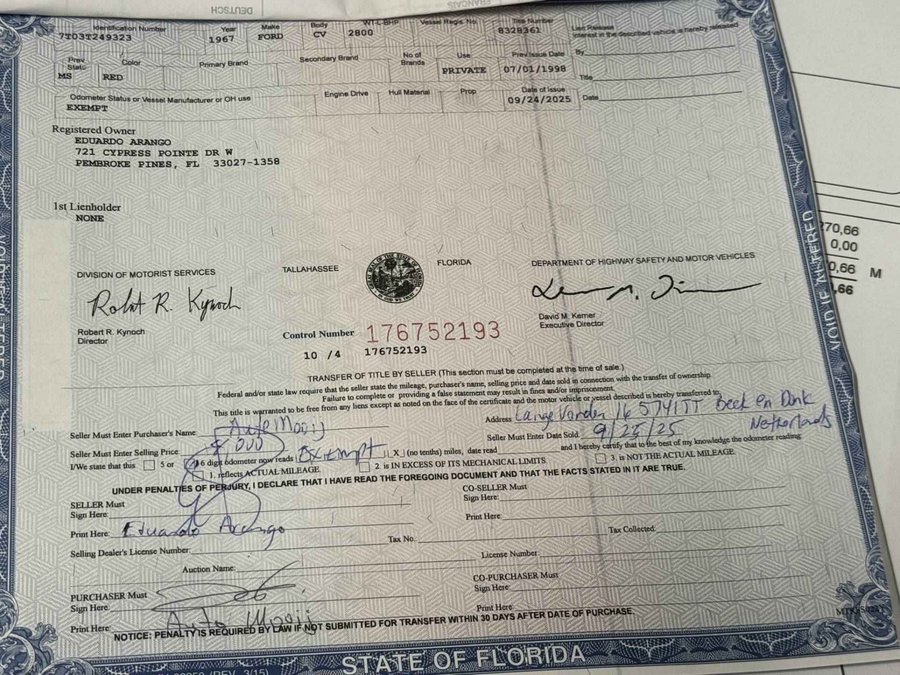 DEUTSCH
FRANÇAIS
Identification Number Year Make Body WT-L-BHP Vessel Regis. No. Title Number
7T03T249323 1967 FORD CV 2800 8328361
Lien Release
Interest in the described vehicle is hereby released
By
Prev State Color Primary Brand Secondary Brand No of Brands Use Prev Issue Date
MS RED PRIVATE 07/01/1998
Title
Odometer Status or Vessel Manufacturer or OH use Engine Drive Hull Material Prop Date of Issue
EXEMPT 09/24/2025
Date
Registered Owner
EDUARDO ARANGO
721 CYPRESS POINTE DR W
PEMBROKE PINES, FL 33027-1358
1st Lienholder
NONE
70,66
0,00
0,66 M
,66
DIVISION OF MOTORIST SERVICES TALLAHASSEE FLORIDA DEPARTMENT OF HIGHWAY SAFETY AND MOTOR VEHICLES
Robert R. Kynoch
Robert R. Kynoch
Director
David M. Kerner
Executive Director
Control Number 176752193
10 /4 176752193
TRANSFER OF TITLE BY SELLER (This section must be completed at the time of sale.)
Federal and/or state law require that the seller state the mileage, purchaser's name, selling price and date sold in connection with the transfer of ownership.
Failure to complete or providing a false statement may result in fines and/or imprisonment.
This title is warranted to be free from any liens except as noted on the face of the certificate and the motor vehicle or vessel described is hereby transferred to:
Seller Must Enter Purchaser's Name: Auto Mooij Address: Lange Vonder 16 5741TT Beek en Donk Netherlands
Seller Must Enter Selling Price: Seller Must Enter Date Sold: 9/25/25
I/We state that this 5 or 6 digit odometer now reads Exempt X (no tenths) miles, date read and I hereby certify that to the best of my knowledge the odometer reading:
1. reflects ACTUAL MILEAGE. 2. is IN EXCESS OF ITS MECHANICAL LIMITS 3. is NOT THE ACTUAL MILEAGE.
UNDER PENALTIES OF PERJURY, I DECLARE THAT I HAVE READ THE FOREGOING DOCUMENT AND THAT THE FACTS STATED IN IT ARE TRUE.
SELLER Must
Sign Here:
CO-SELLER Must
Sign Here:
Print Here: Eduardo Arango Print Here:
Selling Dealer's License Number: Tax No. Tax Collected:
Auction Name: License Number:
PURCHASER Must
Sign Here:
CO-PURCHASER Must
Sign Here:
Print Here: Auto Mooij Print Here:
NOTICE: PENALTY IS REQUIRED BY LAW IF NOT SUBMITTED FOR TRANSFER WITHIN 30 DAYS AFTER DATE OF PURCHASE.
STATE OF FLORIDA
(REV. 3/15)
VOID IF ALTERED